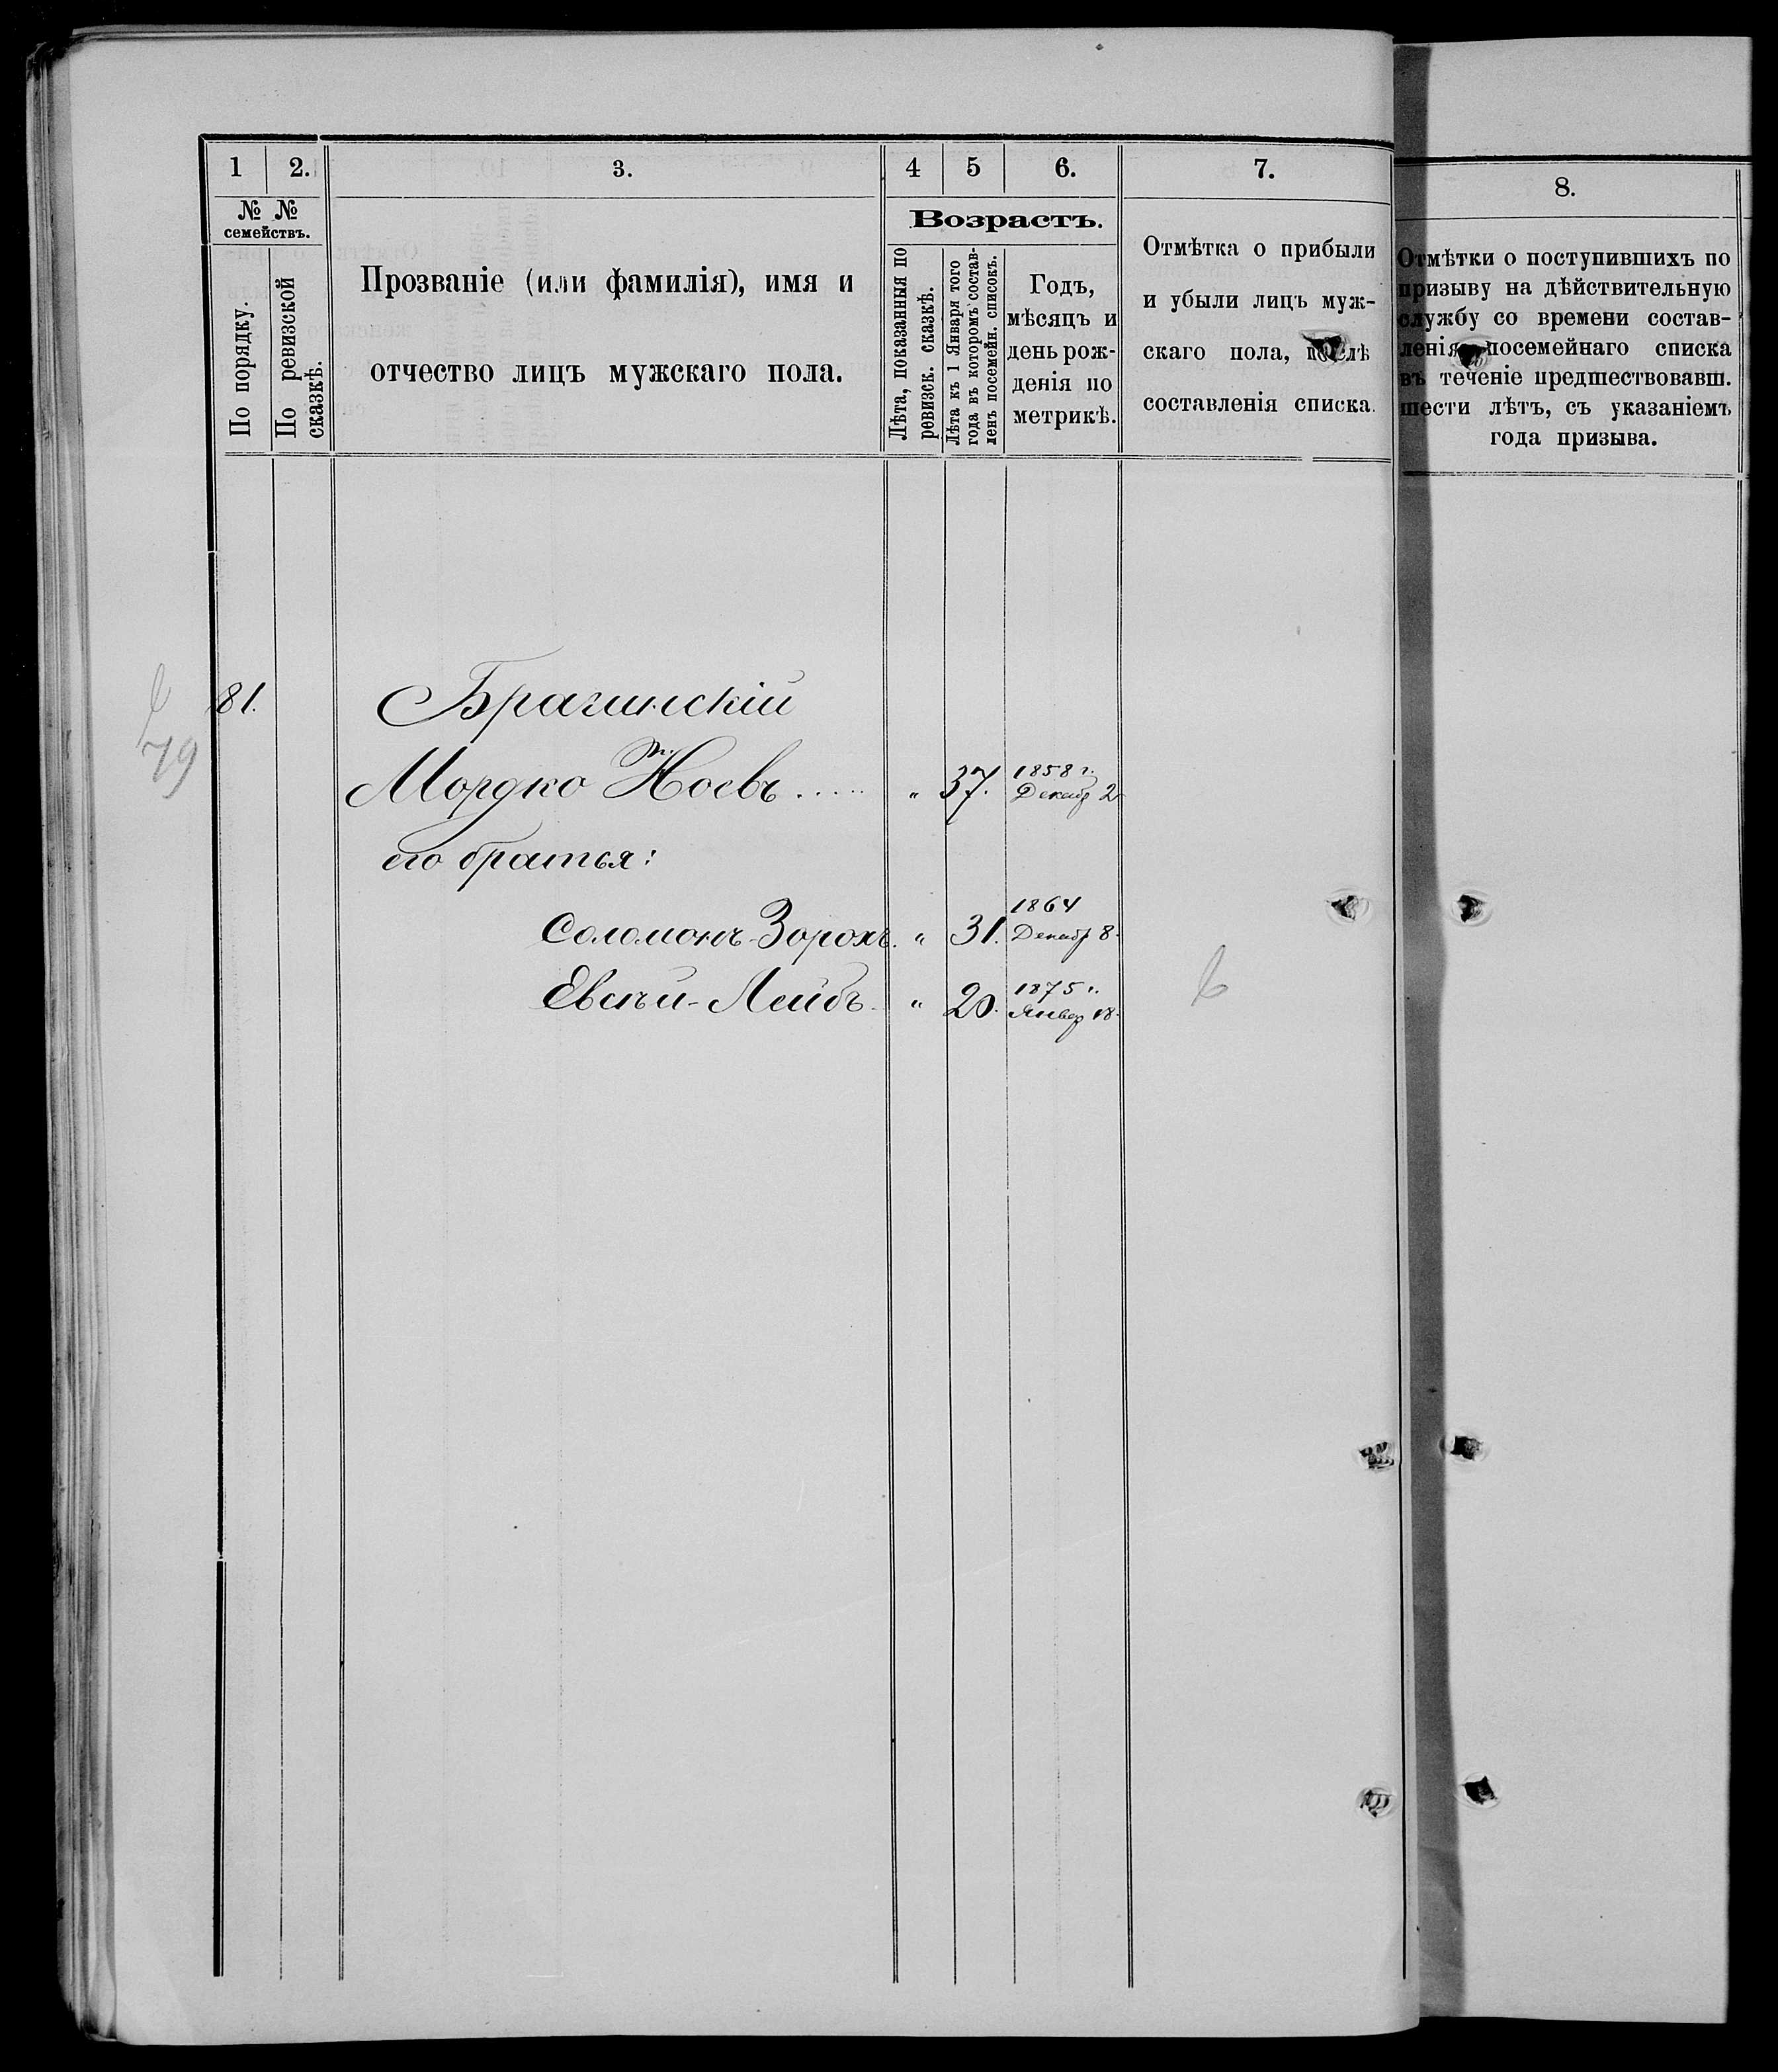 1
2.
3.
4
5
6.
7.
8.
№ №
семействъ.
По порядку.
По ревизской
сказкѣ.
Прозваніе (или фамилія), имя и
отчество лицъ мужскаго пола.
Возрастъ.
Лѣта, показанныя по
ревизск. сказкѣ.
Лѣта къ 1 Января того
года въ которомъ состав-
ленъ посемейн. списокъ.
Годъ,
мѣсяцъ и
день рож-
денія по
метрикѣ.
Отмѣтка о прибыли
и убыли лицъ муж-
скаго пола, послѣ
составленія списка.
Отмѣтки о поступившихъ по
призыву на дѣйствительную
службу со времени состав-
ленія посемейнаго списка
въ теченіе предшествовавш.
шести лѣтъ, съ указаніемъ
года призыва.
81. Брагинскій
79
Мордко Ноевъ..... " 37. 1858 г. Декабр 2
его братья:
Соломонъ-Зорохъ. " 31. 1864 Декабр 8.
Евсѣй-Лейбъ. " 20. 1875 г. Январ 18.